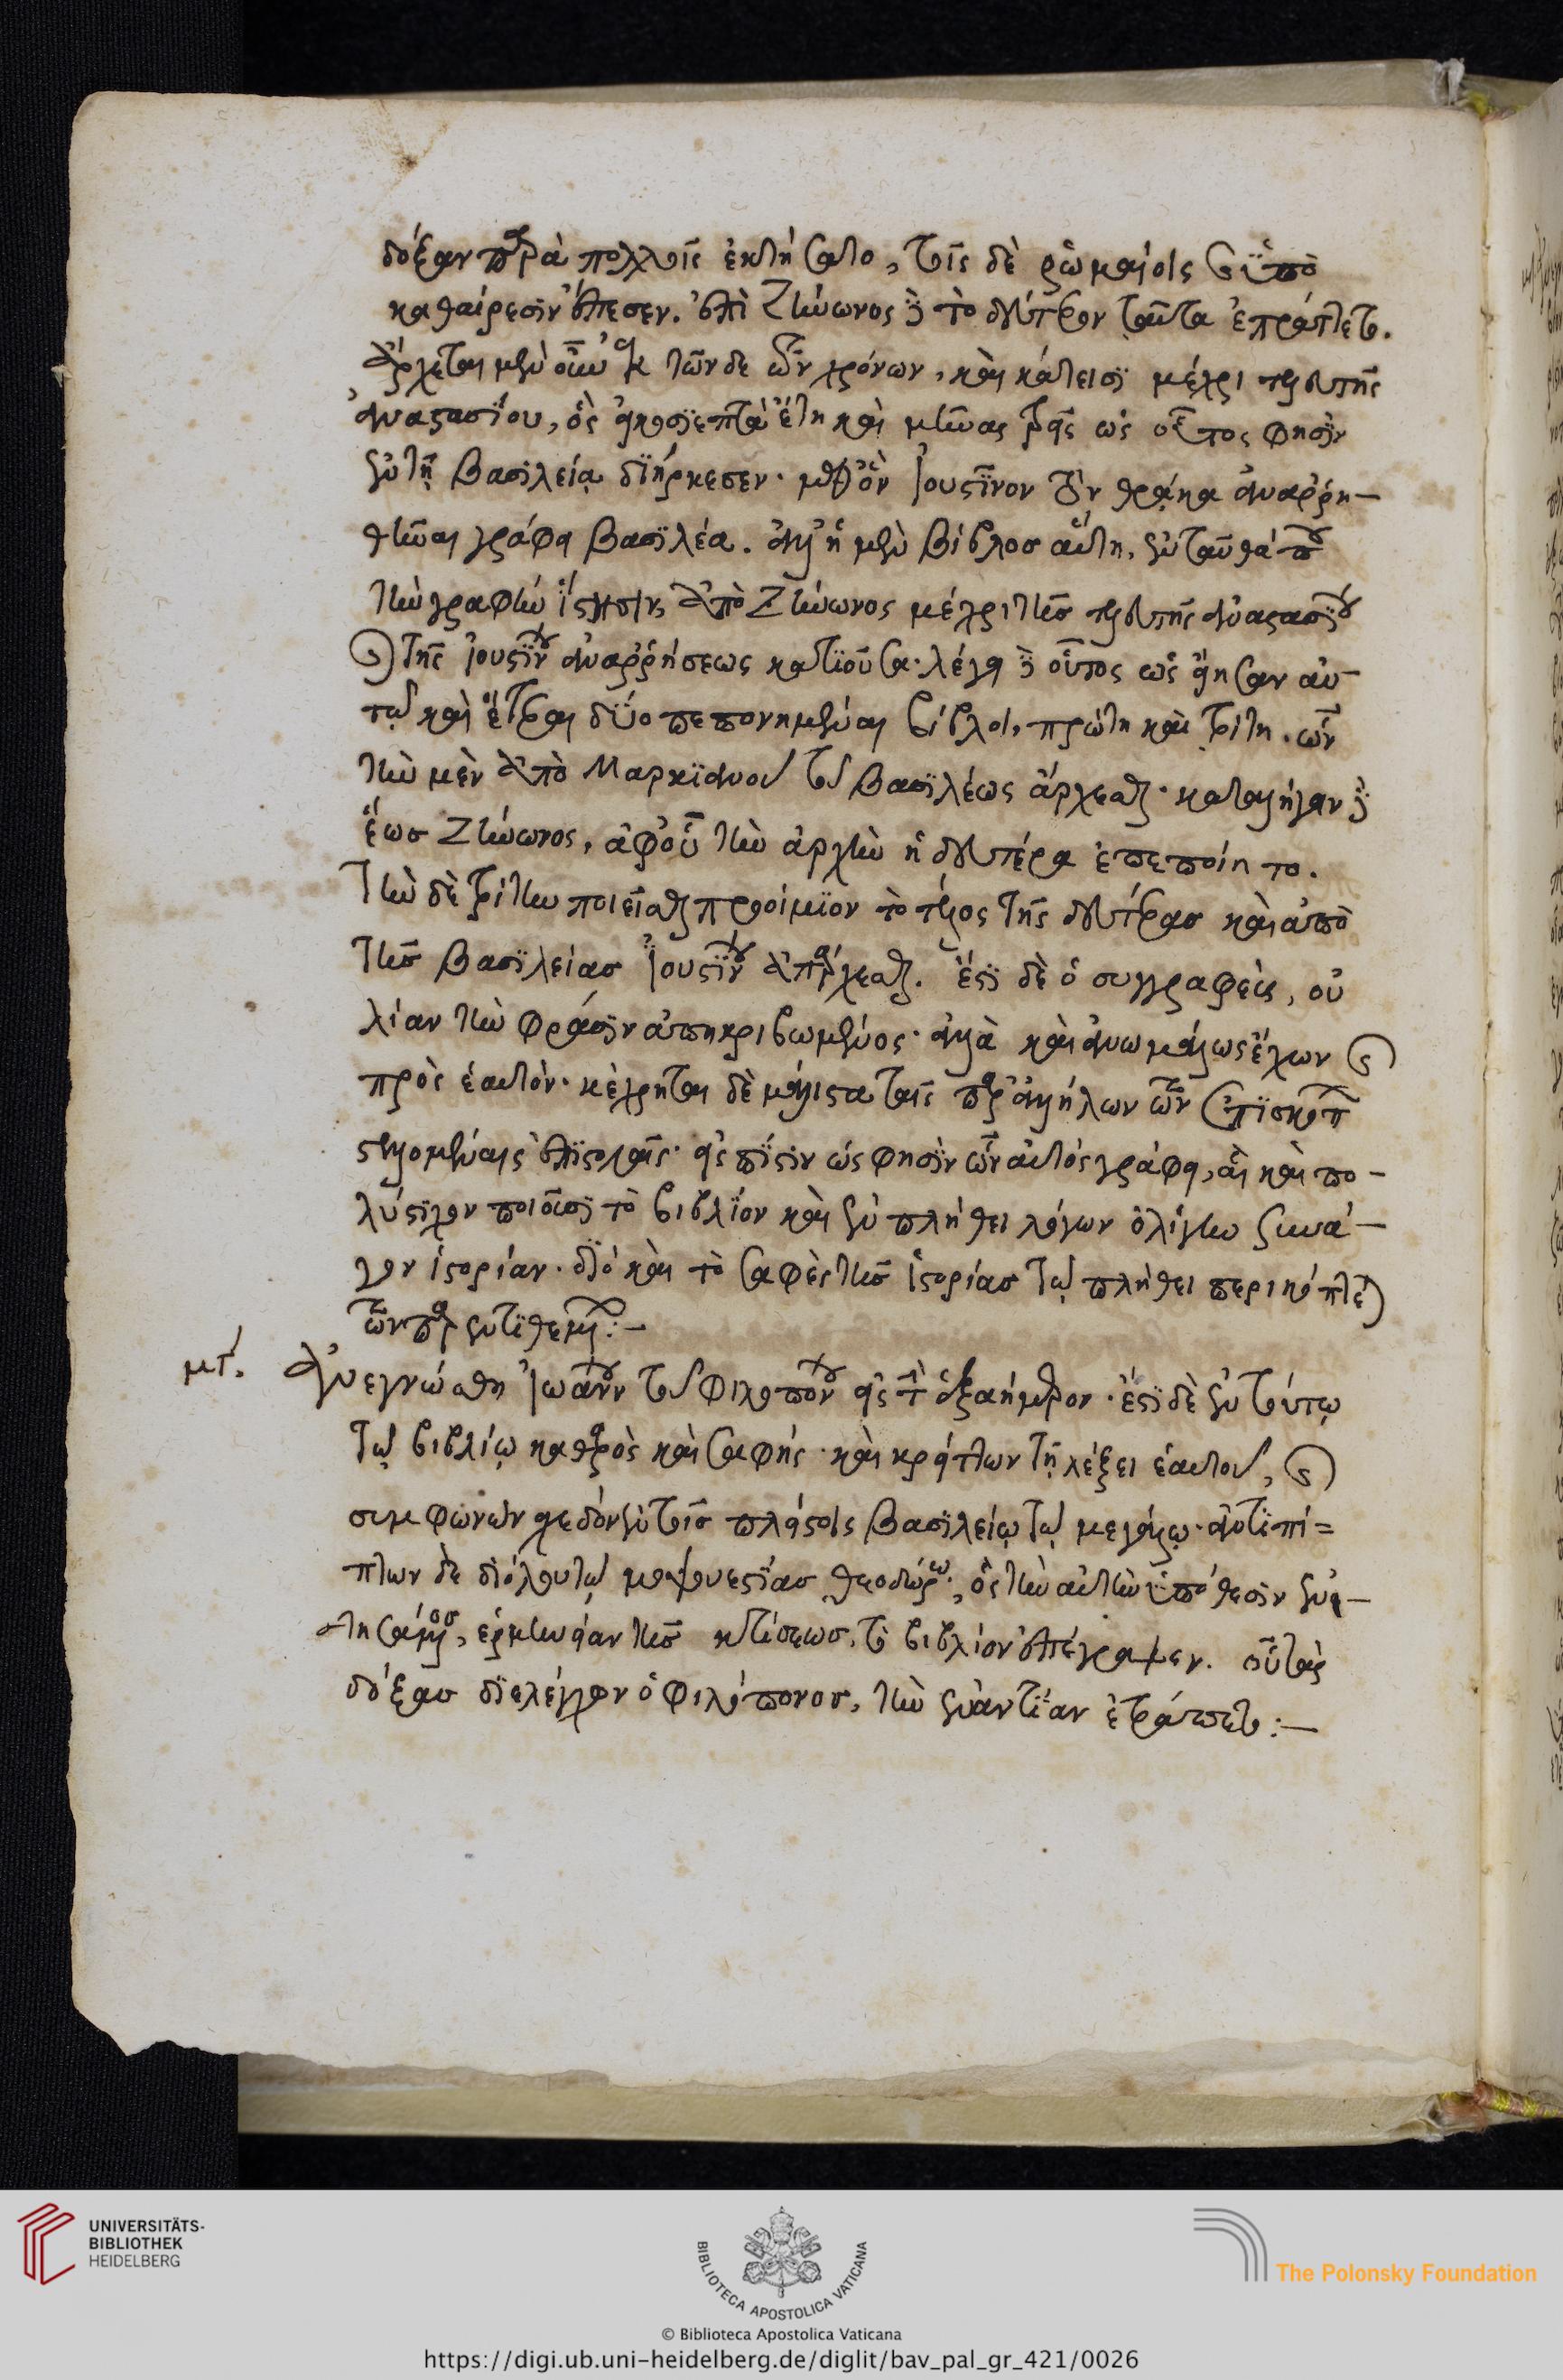 δόξαν παρὰ πολλοῖς ἐκτήσατο, τοῖς δὲ ῥωμαίοις καὶ ὑπὸ
καθαίρεσιν ἔπεσεν. ἐπὶ Ζήνωνος δὲ τὸ δεύτερον ταῦτα ἐπράττετο.
ἄρχεται μὲν οὖν ἐκ τῶνδε τῶν χρόνων, καὶ κάτεισι μέχρι τελευτῆς
ἀναστασίου, ὃς εἰκοσιεπτὰ ἔτη καὶ μῆνας τρεῖς ὡς οὗτος φησὶν
ἐν τῇ βασιλείᾳ διήρκεσεν. μεθ' ὃν ἰουστῖνον τὸν θρᾷκα ἀναρρη-
θῆναι γράφει βασιλέα. ἀλλ' ἡ μὲν βίβλος αὕτη, ἐνταῦθά που
τὴν γραφὴν ἵστησιν, ἀπὸ Ζήνωνος μέχρι τῆς τελευτῆς ἀναστασίου
καὶ τῆς ἰουστίνου ἀναρρήσεως κατιοῦσα. λέγει δὲ οὗτος ὡς εἴησαν αὐ-
τῷ καὶ ἕτεραι δύο πεπονημέναι βίβλοι, πρώτη καὶ τρίτη. ὧν
τὴν μὲν ἀπὸ Μαρκιανοῦ τοῦ βασιλέως ἄρχεσθαι. καταλήγειν δὲ
ἕως Ζήνωνος, ἀφ' οὗ τὴν ἀρχὴν ἡ δευτέρα ἐπεποίητο.
Τὴν δὲ τρίτην ποιεῖσθαι προοίμιον τὸ τέλος τῆς δευτέρας καὶ ἀπὸ
τῆς βασιλείας ἰουστίνου ἀπάρχεσθαι. ἔστι δὲ ὁ συγγραφεὺς, οὐ
λίαν τὴν φράσιν ἀπηκριβωμένος. ἀλλὰ καὶ ἀνωμάλως ἔχων καὶ
πρὸς ἑαυτὸν. κέχρηται δὲ μάλιστα ταῖς παρ' ἀλλήλων τῶν ἐπισκόπων
στελλομέναις ἐπιστολαῖς. εἰς πίστιν ὡς φησὶν ὧν αὐτὸς γράφει, αἳ καὶ πο-
λύστιχον ποιοῦσι τὸ βιβλίον καὶ ἐν πλήθει λόγων ὀλίγην συνά-
γειν ἱστορίαν. διὸ καὶ τὸ σαφὲς τῆς ἱστορίας τῷ πλήθει περικόπτεται
τῶν παρεντιθεμένων:–
μγ΄. Ἀνεγνώσθη ἰωάννου τοῦ φιλοπόνου εἰς τὴν ἑξαήμερον. ἔστι δὲ ἐν τούτῳ
τῷ βιβλίῳ καθαρὸς καὶ σαφὴς. καὶ κρείττων τῇ λέξει ἑαυτοῦ, καὶ
συμφωνῶν σχεδὸν ἐν τοῖς πλείστοις βασιλείῳ τῷ μεγάλῳ. ἀντιπί=
πτων δὲ διόλου τῷ μοψουεστίας θεοδώρῳ, ὃς τὴν αὐτὴν ὑπόθεσιν ἐνει-
στησάμενος, ἑρμηνείαν τῆς κτίσεως, τὸ βιβλίον ἐπέγραψεν. οὗ τὰς
δόξας διελέγχειν ὁ φιλόπονος, τὴν ἐναντίαν ἐτράπετο:–
UNIVERSITÄTS-
BIBLIOTHEK
HEIDELBERG
BIBLIOTECA APOSTOLICA VATICANA
The Polonsky Foundation
© Biblioteca Apostolica Vaticana
https://digi.ub.uni-heidelberg.de/diglit/bav_pal_gr_421/0026